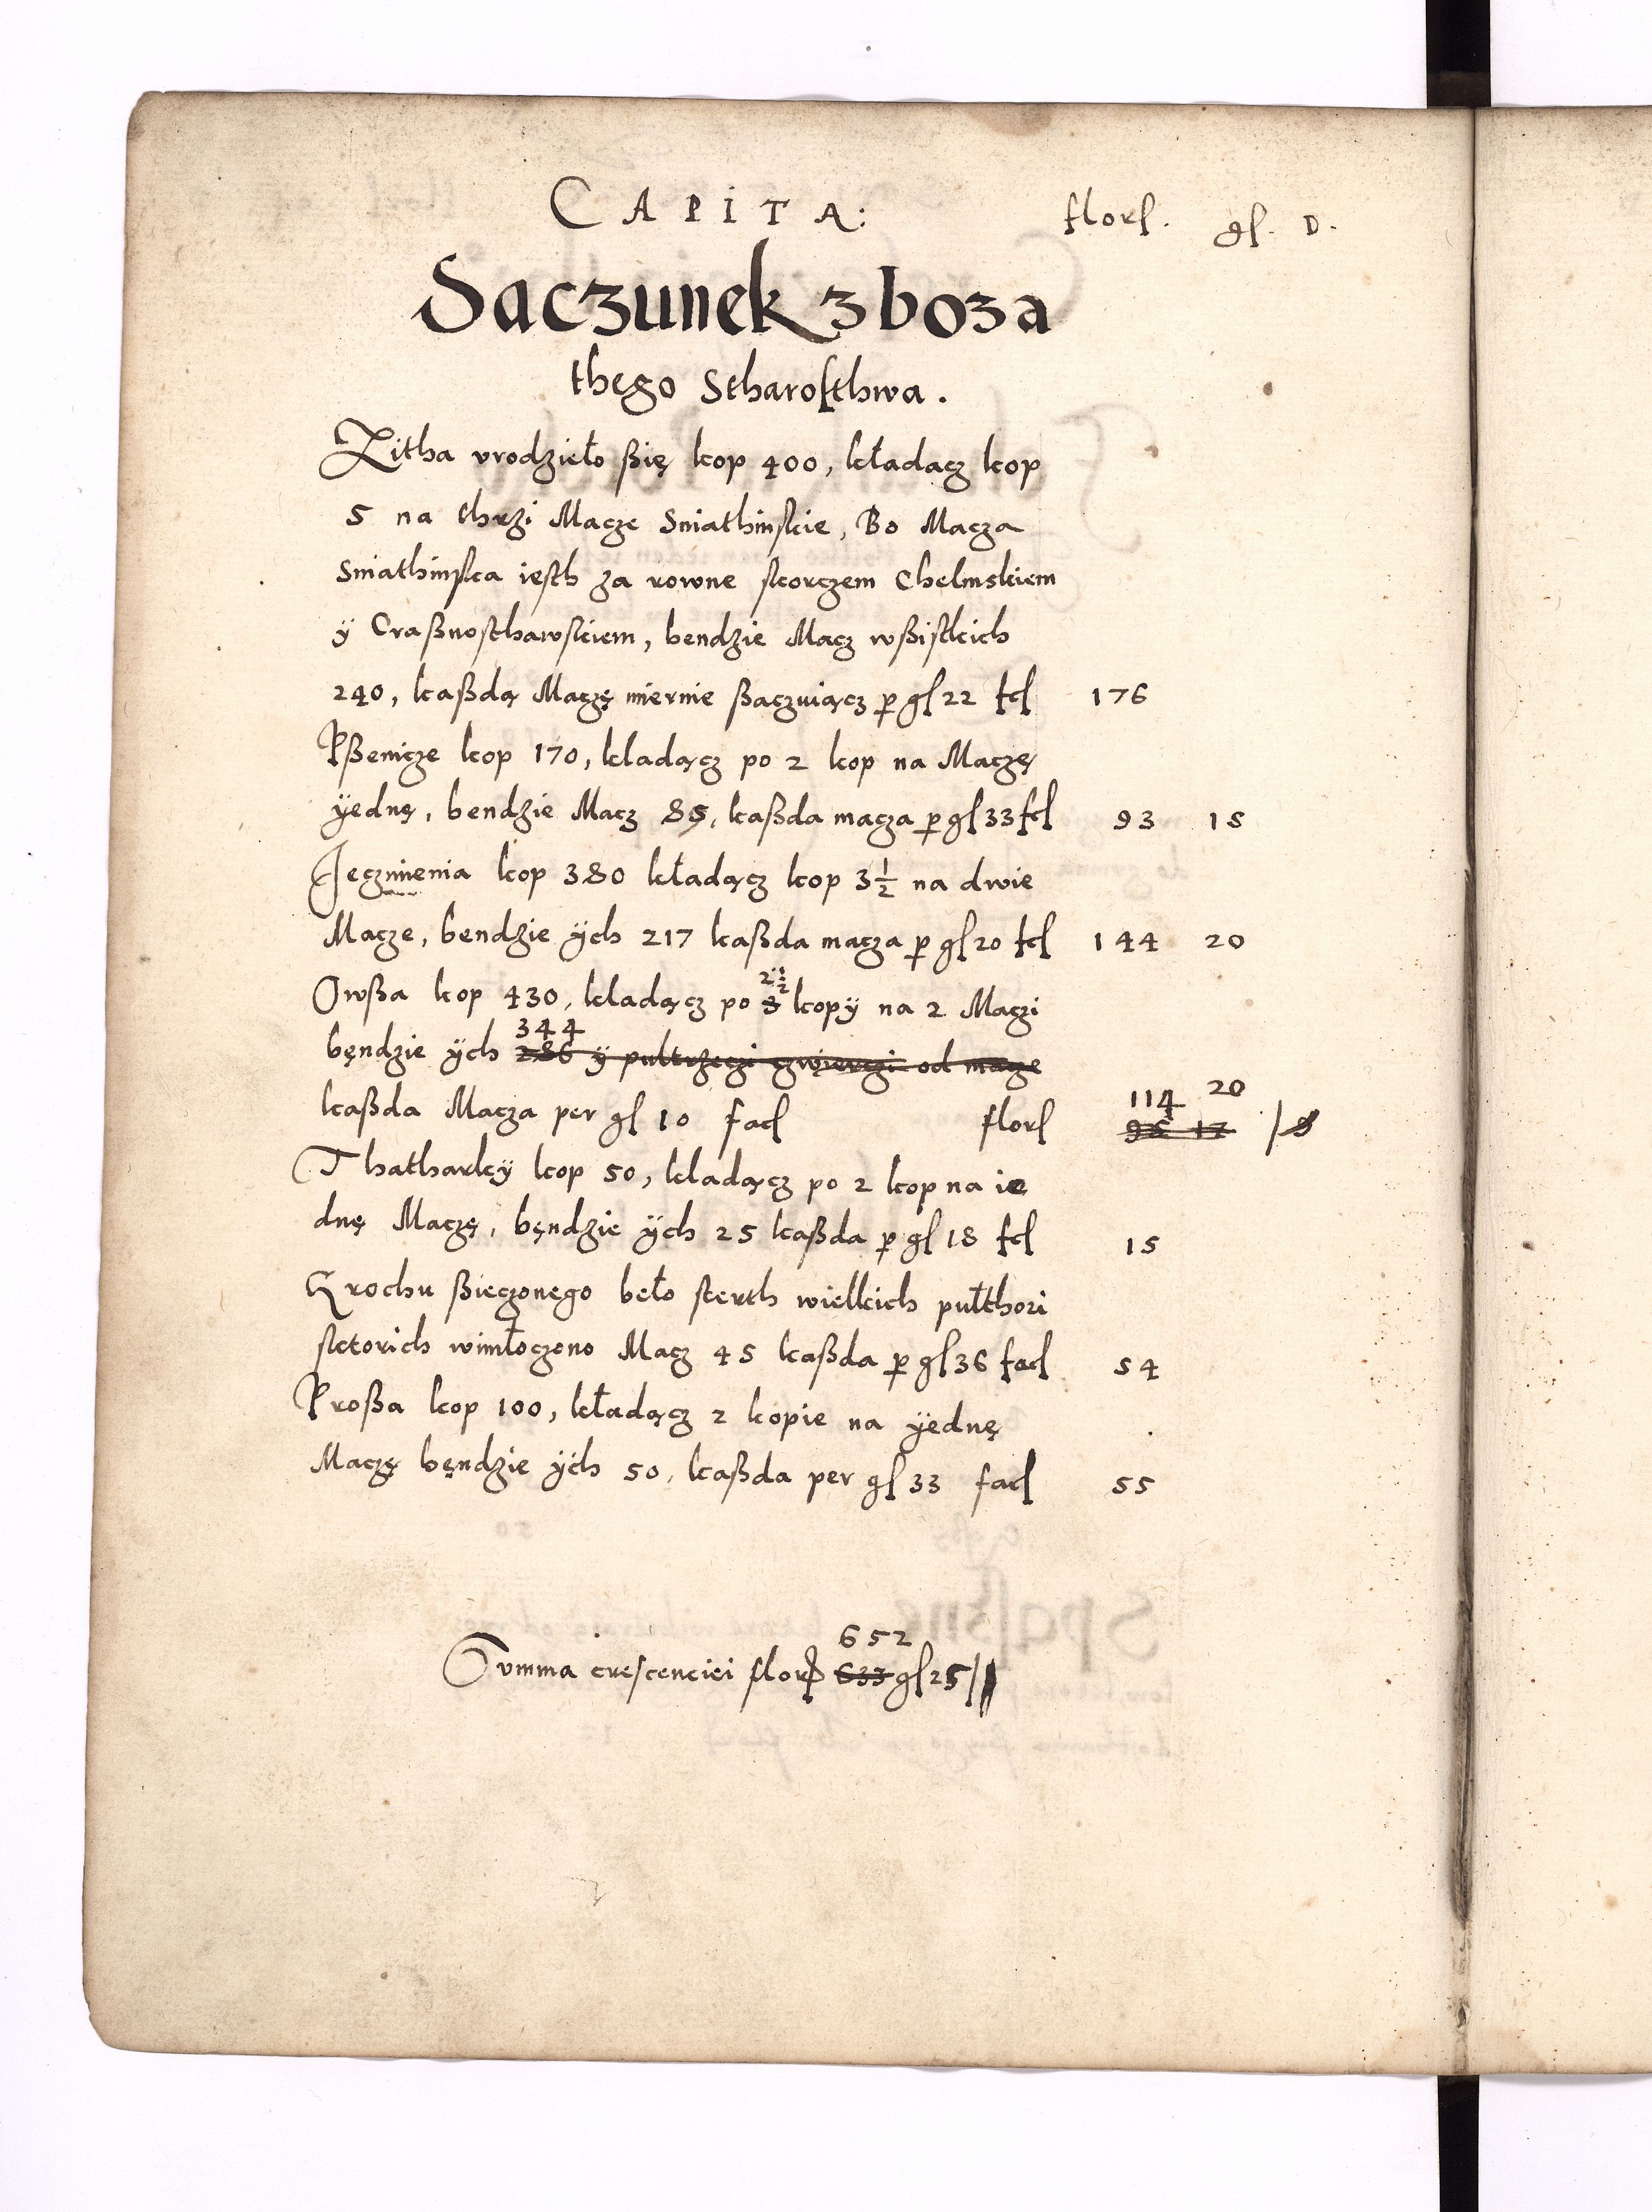 CAPITA: florſ. gſ. D.
Saczunek zboza
thego Stharoſthwa.
Zitha vrodzieło ßię kop 400, kładacz kop
5 na thrzi Macze Sniathinſkie, Bo Macza
Sniathinſka ieſth za rowne ſkorczem Chelmskiem
ÿ Craßnoſthawſkiem, bendzie Macz wßiſtkich
240, kaßdą Maczę miernie ßaczuiącz p gſ 22 fcſ 176
Pßenicze kop 170, kladącz po 2 kop na Maczę
ÿednę, bendzie Macz 85, kaßda macza p gſ 33 fcſ 93 15
Jeczmienia kop 380 kładącz kop 3 1/2 na dwie
Macze, bendzie ÿch 217 kaßda macza p gſ 20 fcſ 144 20
Owßa kop 430, kladącz po 3 2 1/2 kopÿ na 2 Maczi
bęndzie ÿch 344 286 ÿ pultrzeczi czwierczi od macze
kaßda Macza per gſ 10 facſ florſ 114 20
Thatharkÿ kop 50, kladącz po 2 kop na ie
dnę Maczę, bęndzie ÿch 25 kaßda p gſ 18 fcſ 15
Grochu ßieczonego beło ſterth wielkich pułthori
ſktorich wimłoczono Macz 45 kaßda p gſ 36 facſ 54
Proßa kop 100, kładącz 2 kopie na ÿednę
Maczę bęndzie ÿch 50, kaßda per gſ 33 facſ 55
Summa creſcenciei florſ 652 633 gſ 25